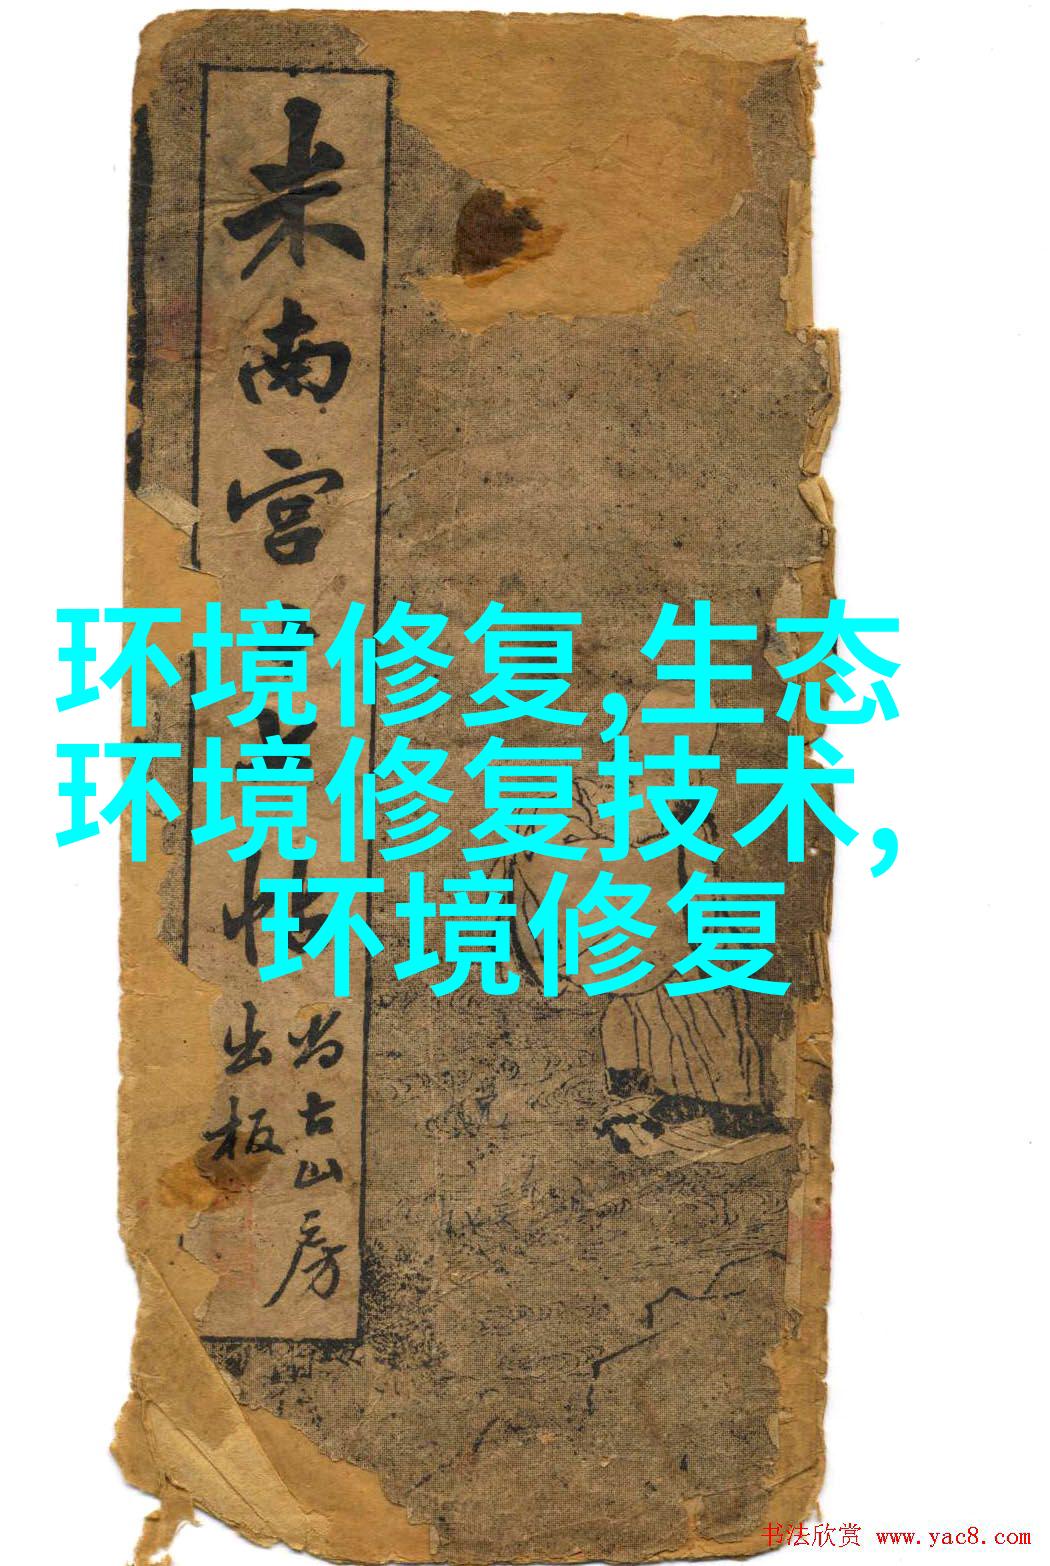 米南宫
尚古山房
出板
环境修复,生态
环境修复技术,
环境修复
书法欣赏 www.yac8.com